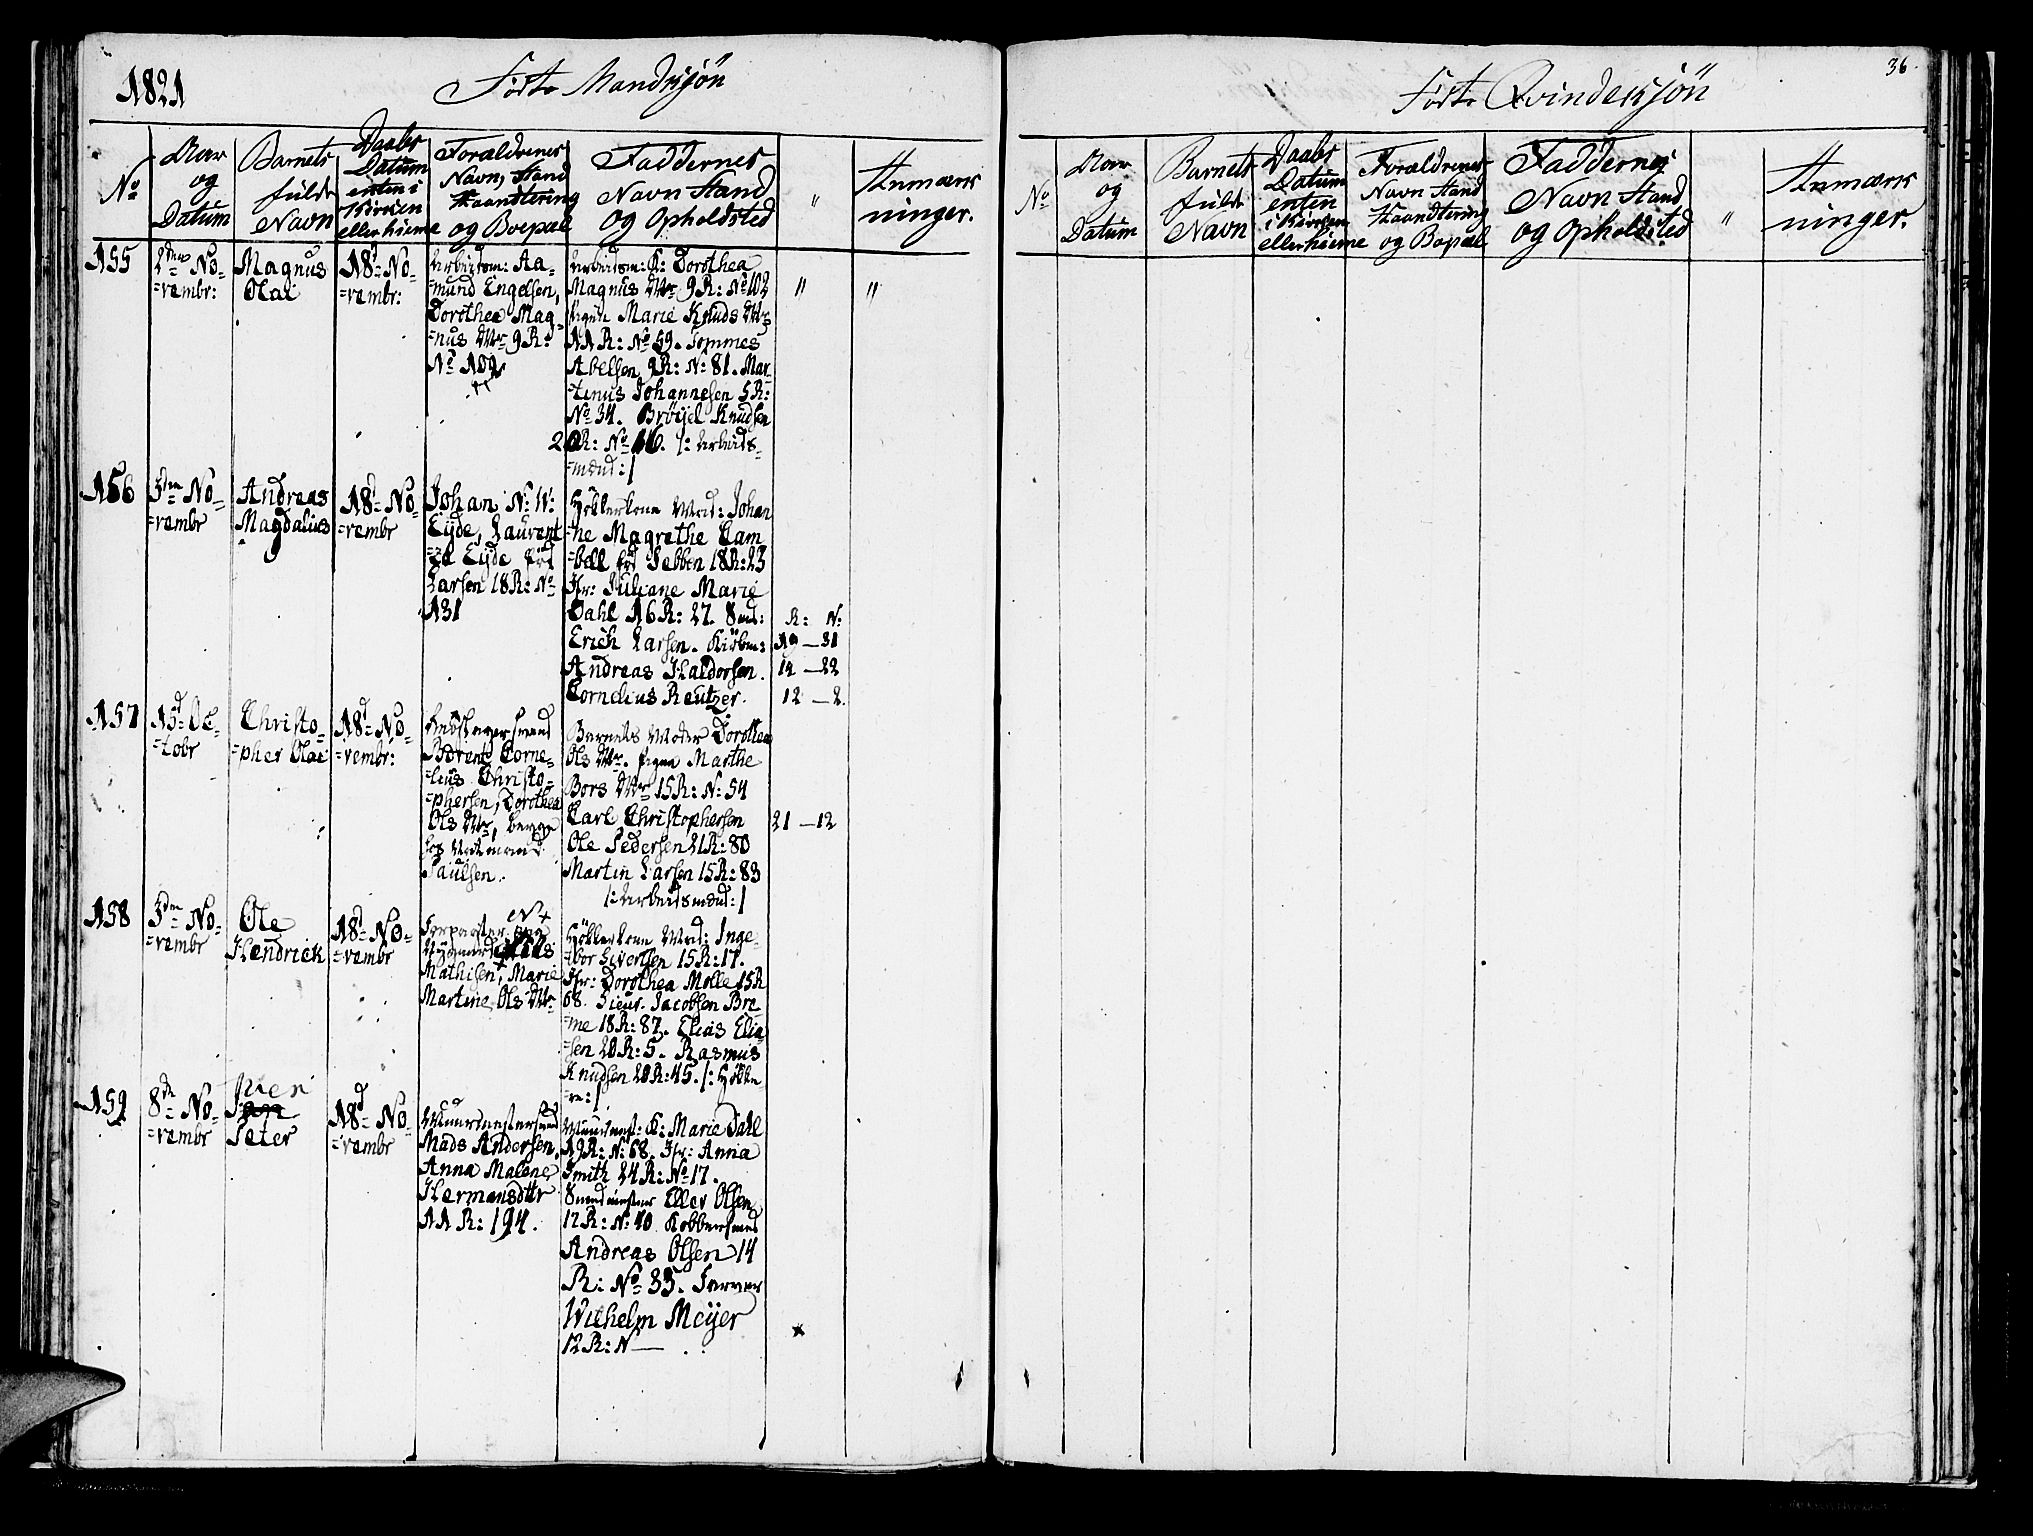 1821
Födte Mandkjön
No
Aar
og
Datum
Barnets
fulde
Navn
Daabs
Datum
enten i
Kirken
eller hieme
Forældrenes
Navn, Stand
Haandtering
og Boepæl
Faddernes
Navn Stand
og Opholdsted
"
Anmærk
ninger.
155
2den No-
=vembr:
Magnus
Olai
18d No-
=vembr:
Arbeidsm: Aa-
=mund Engelsen,
Dorothea Mag-
=nus Dtr 9R:
No 102
Arbeidsm: K: Dorothea
Magnus Dtr 9R: No 102
Pigen Marie Knuds Dtr
11R: No 59. Tommes
Abelsen 9R: N: 81. Mar-
=tinus Johannesen 5R:
No 34. Bröyel Knudsen
20R: No 16. /: Arbeids-
=mænd :/
"
"
156
3den No-
=vembr
Andreas
Magdalius
18d No-
=vembr
Johan N: W:
Eyde, Laurent-
=za Eyde föd
Larsen 18R: No
131
Høkkerkone Mad: Johan
=ne Magrethe Cam
=bell föd Jebben 18R: 23
Jfr: Juliane Marie
Dahl 16R: 27. Smed:
Erich Larsen. Kiöbm:
Andreas Haldorsen.
Cornelius Reutzer.
R: N:
19 — 31
14 — 22
12 — 2.
157
15d Oc-
=tobr
Christo-
=pher Olai
18d No-
=vembr:
Berent Corne-
=lius Christo-
=phersen, Dorothea
Ols Dtr, begge
hos
Paulsen.
Barnets Moder Dorothea
Ols Dtr. Pigen Marthe
Bors Dtr 15R: N: 54
Carl Christophersen
Ole Pedersen 21R: 80
Martin Larsen 15R: 83
/: Arbeidsmænd :/
21 — 12
158
3den No-
=vembr
Ole
Hendrick
18d No-
=vembr
Nygaard Nils
Mathisen, Marie
Martine Ols Dtr
Høkkerkone Mad: Inge-
=bor Sivertsen 15R: 17.
Jfr: Dorothea Molle 15R
68. Sieur. Jacobsen Bre
=me 18R: 87. Elias Elia
=sen 20R: 5. Rasmus
Knudsen 20R: 45. /: Høkke-
=re :/
159
8de No-
=vembr
Iver
Peter
18d No-
=vembr
Muurmestersvend
Mads Andersen,
Anna Malene
Hermansdttr
11 R: 194.
Muurmest: K: Marie Dahl
19R: N: 68. Jfr: Anna
Smith 24R: No 17.
Smedmester Eller Olsen
12R: N: 40. Kobbersmed
Andreas Olsen 14
R: No 35. Farver
Wilhelm Meyer
12R: N —
36.
Födte Qvindekjön
No
Aar
og
Datum
Barnets
fulde
Navn
Daabs
Datum
enten
i Kirken
eller hieme
Forældrenes
Navn Stand
Haandtering
og Bopæl
Faddernes
Navn Stand
og Opholdsted
"
Anmærk
ninger.